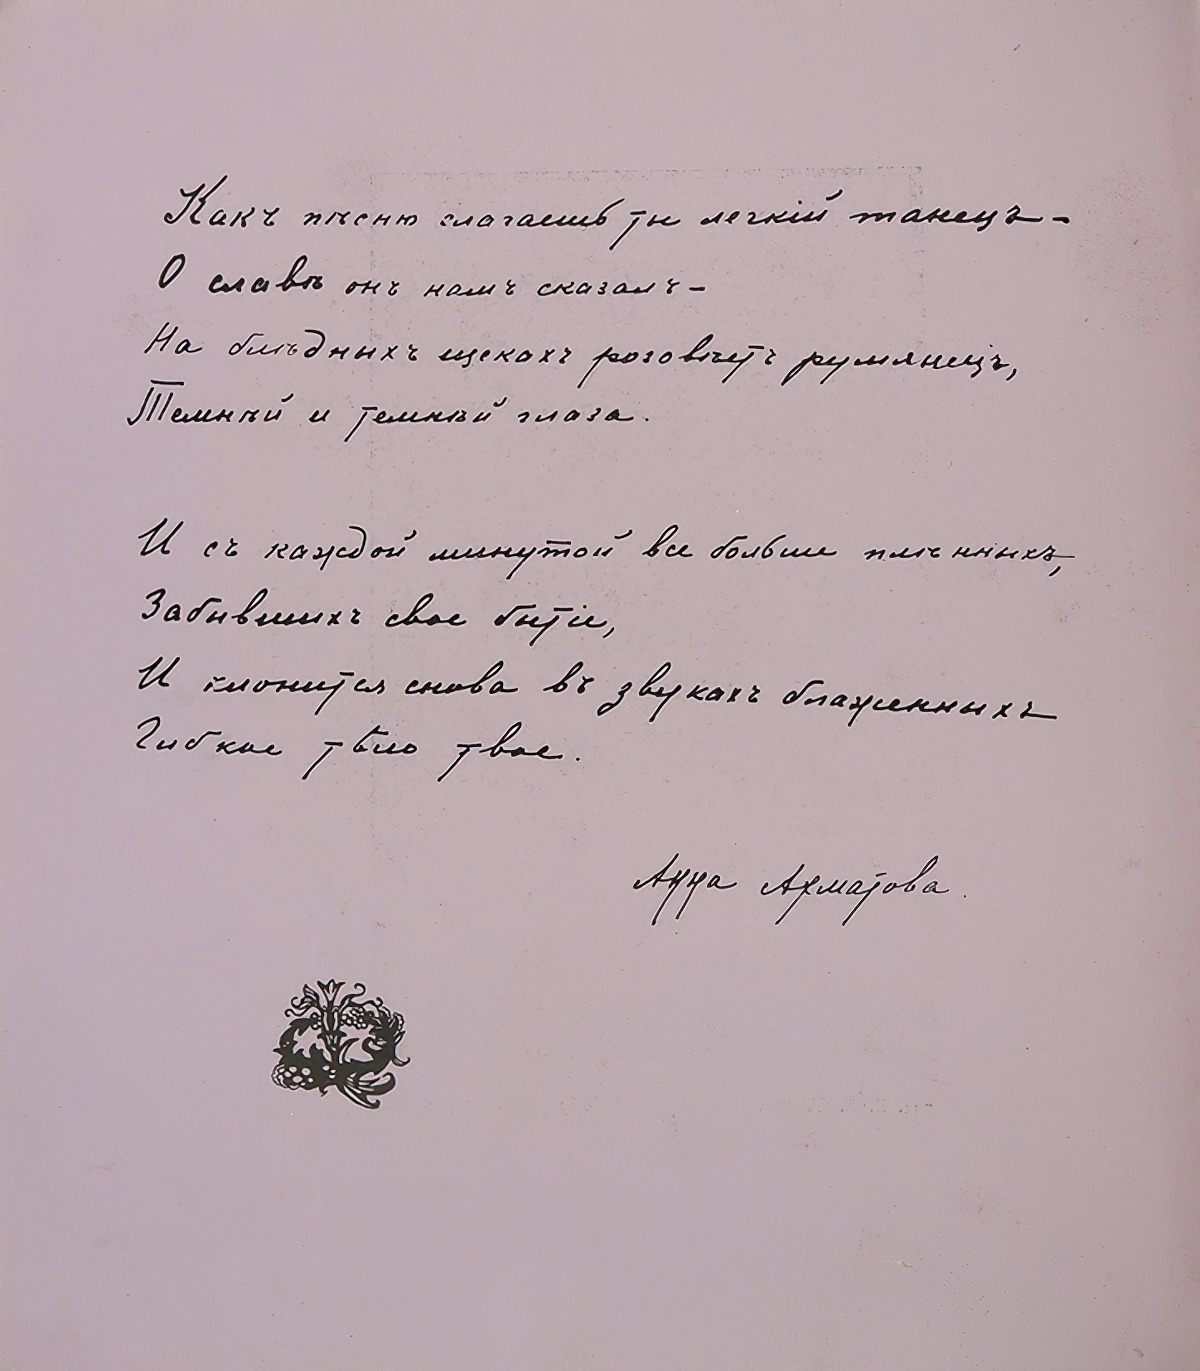 Какъ пѣсню слагаешь ты легкій танецъ –
О славѣ онъ намъ сказалъ –
На блѣдныхъ щекахъ розовѣетъ румянецъ,
Темнѣй и темнѣй глаза.
И съ каждой минутой все больше плѣнныхъ,
Забывшихъ свое бытіе,
И клонится снова въ звукахъ блаженныхъ
Гибкое тѣло твое.
Анна Ахматова.